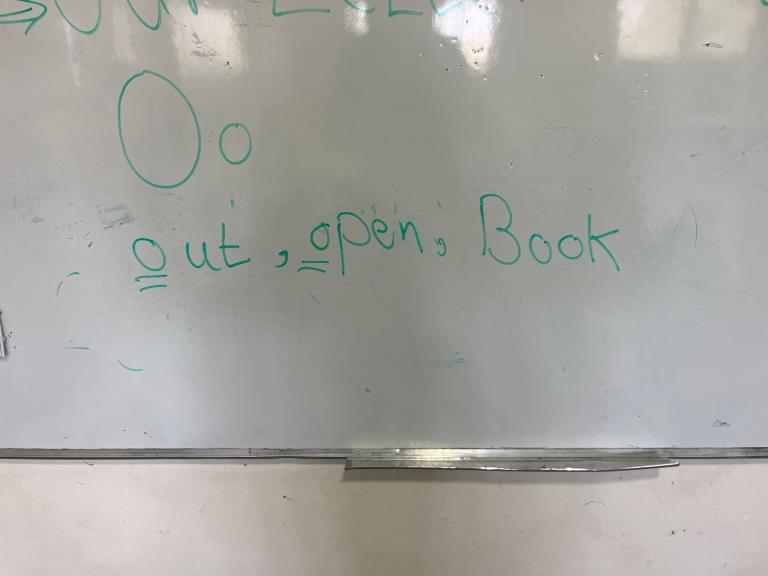 Oo
out, open, Book